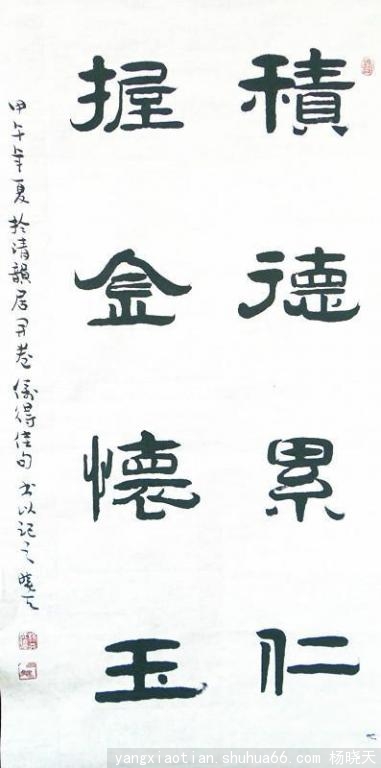 積德累仁
握金懷玉
甲午年夏於清韻居開卷偶得佳句書以記之曉天
yangxiaotian.shuhua66.com 杨晓天